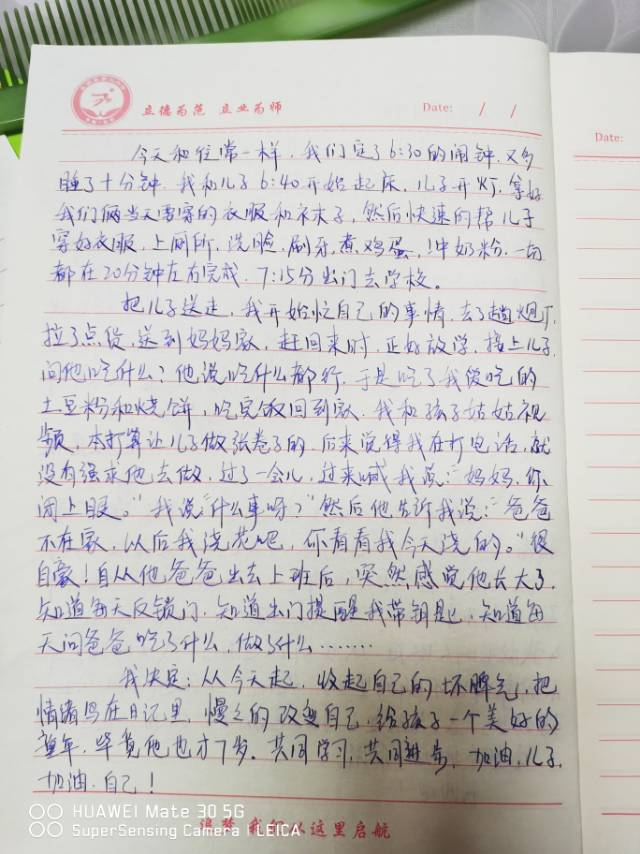 立德为范 立业为师
Date: / /
Date:
今天和往常一样，我们定了6:30的闹钟，又多
睡了十分钟，我和儿子6:40开始起床，儿子开灯，拿好
我们俩当天要穿的衣服和袜子，然后快速的帮儿子
穿好衣服，上厕所，洗脸，刷牙，煮鸡蛋，冲奶粉，一切
都在20分钟左右完成，7:15分出门去学校。
把儿子送走，我开始忙自己的事情，去了趟煤厂，
拉了点货，送到妈妈家，赶回来时，正好放学，接上儿子，
问他吃什么？他说吃什么都行，于是吃了我俩吃的
土豆粉和烧饼，吃完饭回到家，我和孩子姑姑视
频，本打算让儿子做张卷子的，后来觉得我在打电话，就
没有强求他去做，过了一会儿，过来喊我说：“妈妈，你
闭上眼。”我说“什么事呀？”然后他告诉我说：“爸爸
不在家，以后我浇花吧，你看看我今天浇的。”很
自豪！自从他爸爸出去上班后，突然感觉他长大了，
知道每天反锁门，知道出门提醒我带钥匙，知道每
天问爸爸吃了什么，做了什么……
我决定：从今天起，收起自己的坏脾气，把
情绪写在日记里，慢慢的改变自己，给孩子一个美好的
童年，毕竟他也才7岁。共同学习，共同进步，加油，儿子，
加油，自己！
追梦 我们从这里启航
HUAWEI Mate 30 5G
SuperSensing Camera | LEICA